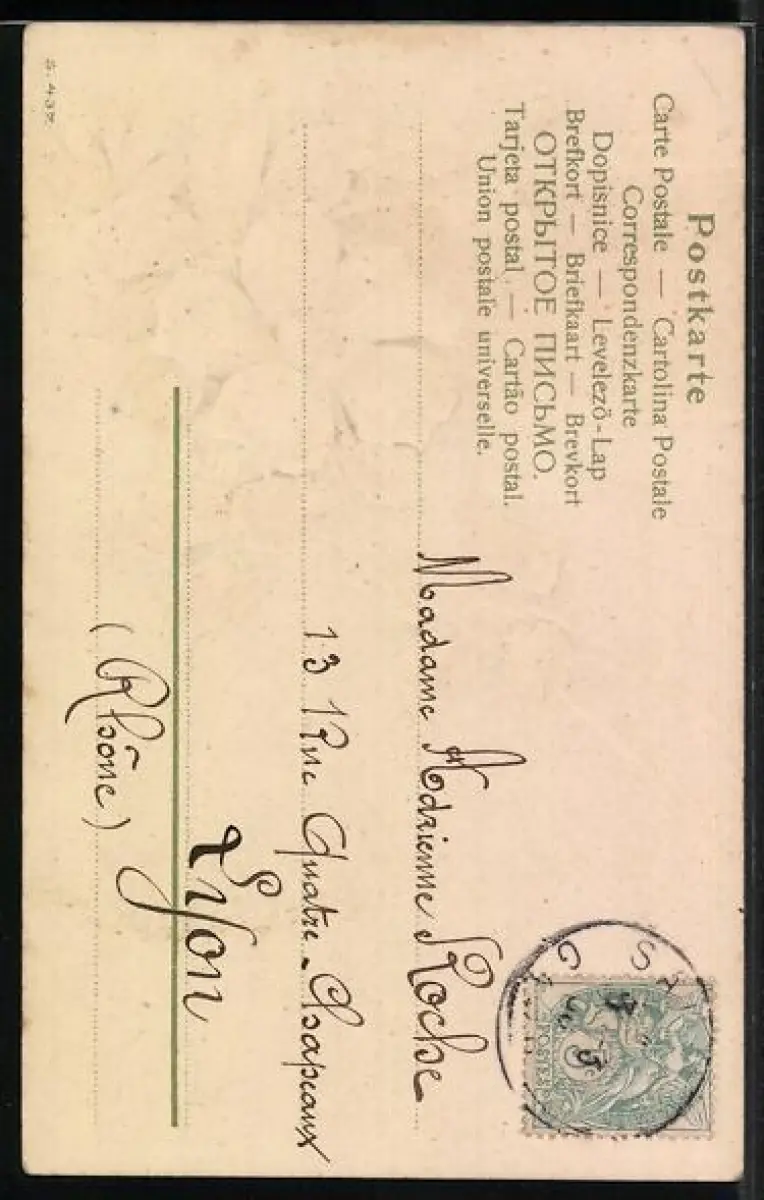 Postkarte
Carte Postale — Cartolina Postale
Correspondenzkarte
Dopisnice — Levelező-Lap
Brefkort — Briefkaart — Brevkort
ОТКРЫТОЕ ПИСЬМО.
Tarjeta postal. — Cartão postal.
Union postale universelle.
Madame Adrienne Roche
13 Rue Quatre-Chapeaux
Lyon
(Rhône)
POSTES